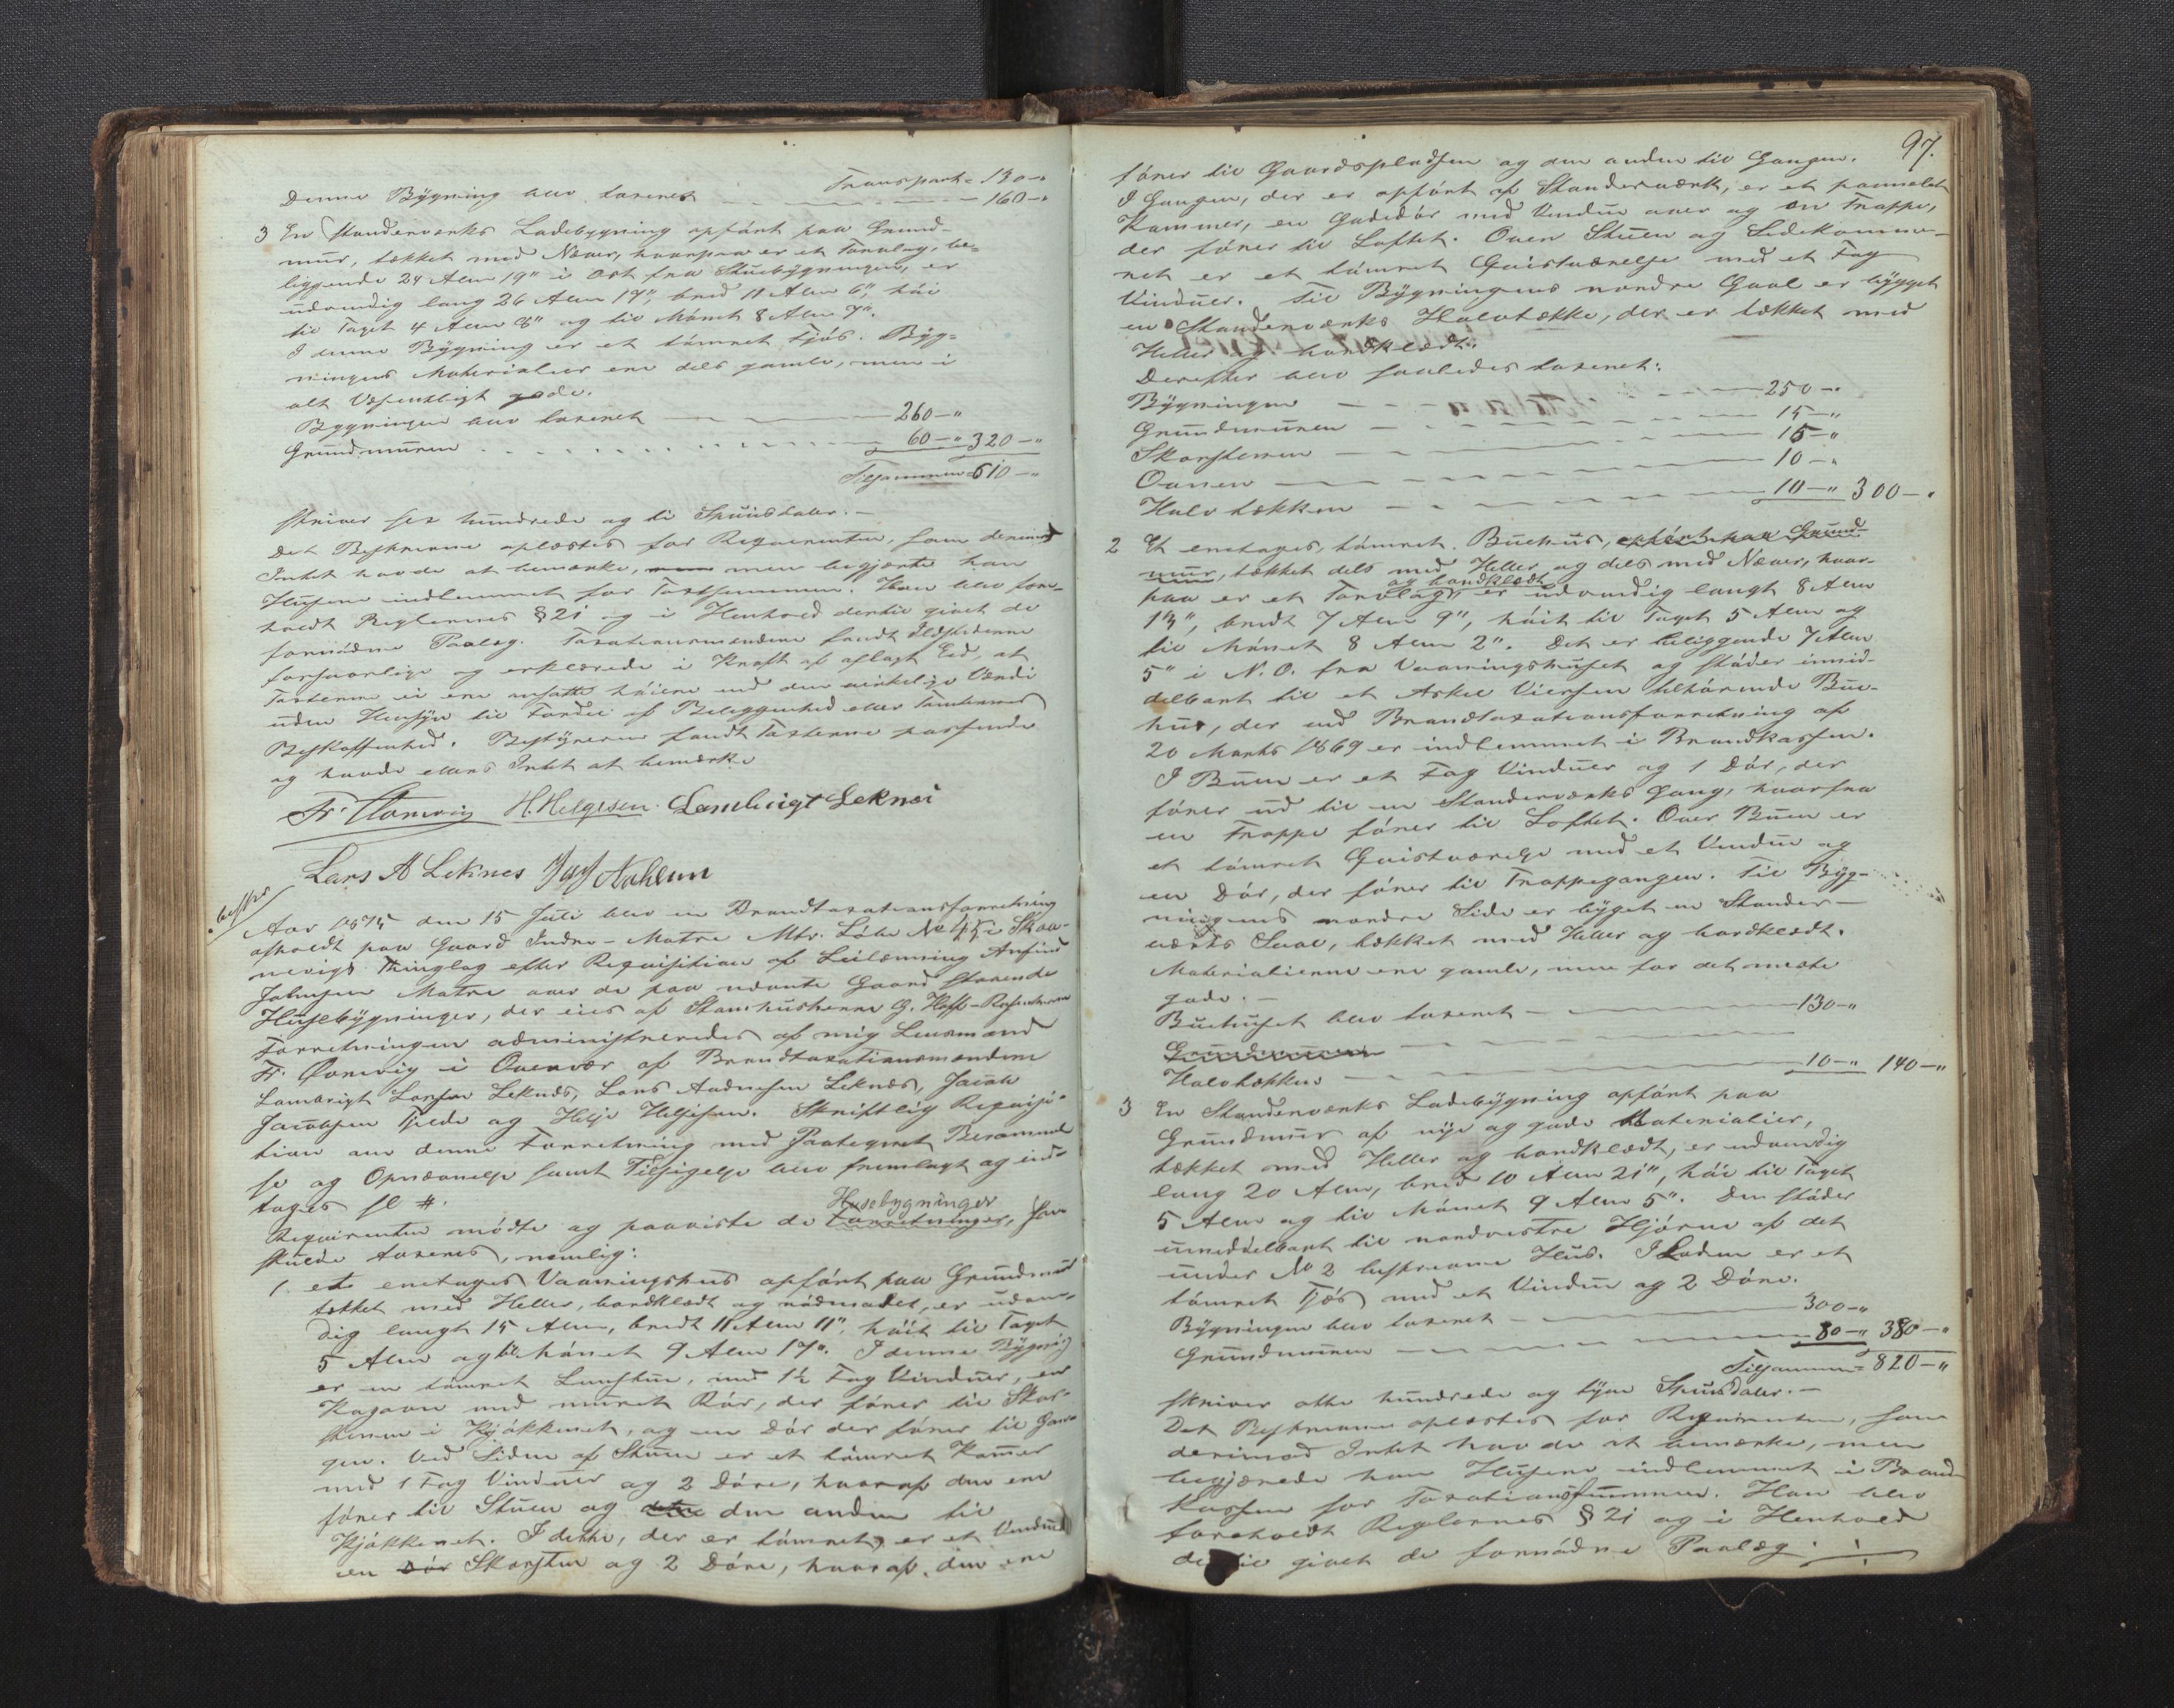 Transport = 130 – "
Denne Bÿgning blev taxeret – – – – 160 – "
3 En Standerværks Ladebygning opført paa Grund-
mur, tækket med Næver, hvorpaa er et Torvlag, be-
liggende 24 Alen 19" i Ost fra Stuebÿgningen, er
udvendig lang 26 Alen 17", bred 11 Alen 6", høi
til Taget 4 Alen 8" og til Mønet 8 Alen 7".
I denne Bÿgning er et tømret Fjøs. Bÿg-
ningens Materialier ere dels gamle, men i
alt Væsentligt gode.
Bygningen blev taxeret – – – 260 – "
Grundmuren . . . . . . 60 – " 320 – "
Tilsammen = 610 – "
skriver sex hundrede og ti Speciedaler. –
Det Beskrevne oplæstes for Reqvirenten, som derimod
Intet havde at bemærke, men begjærte han
Husene indlemmet for Taxtsummen. Han blev fore-
holdt Reglernes § 21 og i Henhold dertil givet de
fornødne Paalæg. Taxationsmændene fandt Ildstederne
forsvarlige og erklærede i Kraft af aflagt Eed, at
Taxterne ei ere ansatte høiere end den virkelige Værdi
uden Hensÿn til Fordel af Beliggenhed eller Tomternes
Beskaffenhed. Bestÿreren fandt Taxterne passende
og havde ellers Intet at bemærke
H. Helgesen. Lambrigt Leknæs
Lars A Leknes
Aar 1875 den 15 Juli blev en Brandtaxationsforretning
afholdt paa Gaard Indre-Matre Mtr. Løbe No 45 i Skaa-
nevigs Thinglag efter Reqvisition af Leilænding Anfind
Johnsen Matre over de paa nævnte Gaard staaende
Husebÿgninger, der eies af Stamhusherre G. Hoff-Rosenkrone
Forretningen administreredes af mig Lensmand
Fr. i Ovenvær af Brandtaxationsmændene
Lambrigt Larsen Leknæs, Lars Aadnesen Leknæs, Jacob
Jacobsen Tjelde og Helje Helgesen. Skriftlig Reqvisi-
tion om denne Forretning med Paategnet Berammel
se og Opnævnelse samt Tilsigelse blev fremlagt og ind-
tages sl #.
Husebygninger
Reqvirenten mødte og paaviste de Forretninger, som
skulde taxeres, nemlig:
1. et enetages Vaaningshus opført paa Grundmur
tækket med Heller, bordklædt og rødmalet, er udven-
dig langt 15 Alen, bredt 11 Alen 11", høit til Taget
5 Alen og til Mønet 9 Alen 17". I denne Bÿgning
er en tømret Lunstue, med 1½ Fag Vinduer, en
Kogeovn med muret Rør, der fører til Skor-
stenen i Kjøkkenet, og en Dør der fører til Gan-
gen. Ved Siden af Stuen er et tømret Kammer
med 1 Fag Vinduer og 2 Døre, hvoraf den ene
fører til Stuen og den anden til
Kjøkkenet. I dette, der er tømret, er et Vindue
en Dør Skorsten og 2 Døre, hvoraf den ene
97.
fører til Gaardspladsen og den anden til Gangen.
I Gangen, der er opført af Standerværk, er et pannelet
Kammer, en Gadedør med Vindue over og en Trappe,
der fører til Loftet. Over Stuen og Sidekamme-
ret er et tømret Qvistværelse med et Fag
Vinduer. Til Bÿgningens nordre Gavl er bÿgget
en Standerværks Halvtække, der er tækket med
Heller og bordklædt.
Derefter blev saaledes taxeret:
Bÿgningen – – – 250 – "
Grundmuren – – – 15 – "
Skorstenen – – – 15 – "
Ovnen – – – 10 – "
Halvtækken – – – 10 – " 300 – "
2 Et enetages, tømret Buehus, opført paa Grund-
mur, tækket dels med Heller og dels med Næver, hvor-
og bordklædt
paa er et Torvlag, er udvendig langt 8 Alen
13", bredt 7 Alen 9", høit til Taget 5 Alen og
til Mønet 8 Alen 2". Det er beliggende 7 Alen
5" i N. O. fra Vaaningshuset og støder umid-
delbart til et Askel Viersen tilhørende Bue-
hus, der ved Brandtaxationsforretning af
20 Marts 1869 er indlemmet i Brandkassen.
I Buen er et Fag Vinduer og 1 Dør, der
fører ud til en Standerværks Gang, hvorfra
en Trappe fører til Loftet. Over Buen er
et tømret Qvistværelse med et Vindue og
en Dør, der fører til Trappegangen. Til Bÿg-
ningens nordre Side er bÿget en Stander-
værks Sval, tækket med Heller og bordklædt.
Materialierne ere gamle, men for det meste
gode. –
Buehuset blev taxeret – – – 130 – "
Grundmuren – – –
Halvtækken – – – 10 – " 140 – "
3 En Standerværks Ladebÿgning opført paa
Grundmur af nÿe og gode Materialier,
tækket med Heller og bordklædt, er udvendig
lang 20 Alen, bred 10 Alen 21", høi til Taget
5 Alen og til Mønet 9 Alen 5". Den støder
umiddelbart til nordvestre Hjørne af det
under No 2 beskrevne Hus. I Laden er et
tømret Fjøs med et Vindue og 2 Døre.
Bÿgningen blev taxeret – – – 300 – "
Grundmuren – – – 80 – " 380 – "
Tilsammen = 820 – "
skriver otte hundrede og tÿve Speciedaler. –
Det Beskrevne oplæstes for Reqvirenten, som
derimod Intet havde at bemærke, men
begjærede han Husene indlemmet i Brand-
kassen for Taxationssummen. Han blev
foreholdt Reglernes § 21 og i Henhold
dertil givet de fornødne Paalæg.